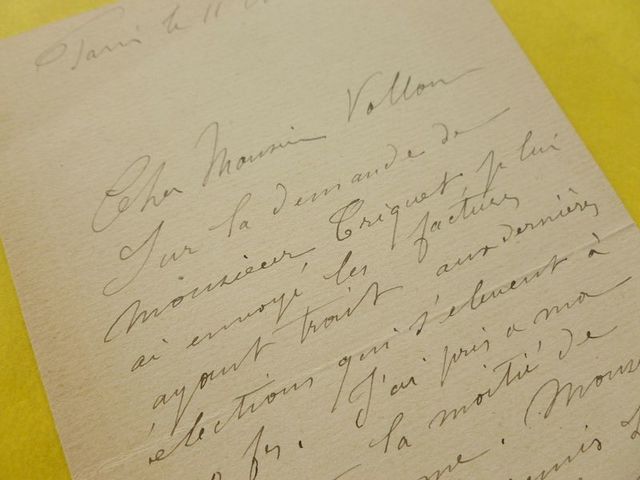 Paris le 11
Cher Monsieur Vollon
Sur la demande de
monsieur Triquet, je lui
ai envoyé les factures
ayant trait aux dernières
élections qui s'élevent à
fcs. J'ai pris a ma
la moitié de